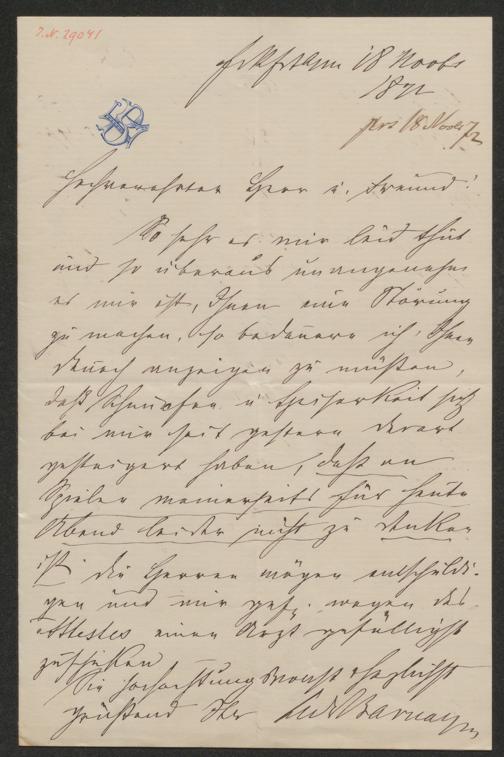 J.N. 29041
Frkfrt a/m 18 Novbr
1872
prs 18 Novbr 72
Hochverehrter Herr u. Freund!
So sehr es mir leid thut
und so überaus unangenehm
es mir ist, Ihnen eine Störung
zu machen, so bedauere ich Ihnen
denoch anzeigen zu müssen,
daß Schnupfen u Heiserkeit sich
bei mir seit gestern derart
gesteigert haben, daß an
Spielen meinerseits für heute
Abend leider nicht zu denken
ist. Die Herren mögen entschuldi-
gen und mir gef. wegen des
Attestes einen Arzt gefälligst
zuschicken
Sie hochachtungsvoll
grüßend Ihr Ludw Barnay